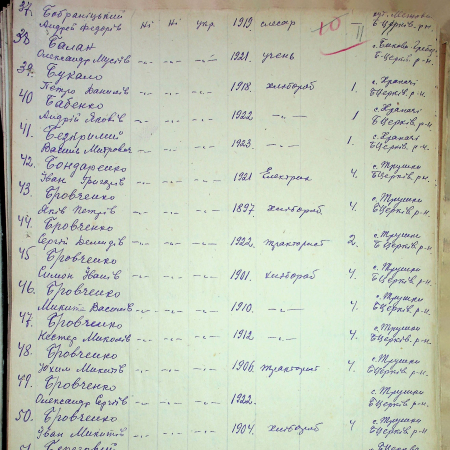 37. Бобраніцький
Андрей Федорів ні ні укр. 1919 слесар 10 II Б Церків. р-н.
38. Балан
Олександр Мусіїв -"- -"- -"- 1921. учень
39. Букало
Петро Данилів -"- -"- -"- 1918. хлібороб 1. с. Храпачі Б Церків р-н.
40 Бабенко
Андрій Яковів -"- -"- -"- 1922 -"- 1 с. Храпачі Б Церків. р-н.
41. Безкримий
Василь Митрович -"- -"- -"- 1923. -"- 1. с. Храпачі Б Церків. р-н.
42. Бондаренко
Іван Григорів -"- -"- -"- 1921 Електрик 4. с. Трушки Б Церків р-н.
43. Бровченко
Яків Петрів -"- -"- -"- 1897. хлібороб 4. с. Трушки Б Церків р-н.
44. Бровченко
Сергій Демидів -"- -"- -"- 1922. тракторист 2. с. Трушки Б Церків р-н.
45 Бровченко
Симон Іванів -"- -"- -"- 1901. хлібороб 4. с. Трушки Б Церків р-н.
46. Бровченко
Микита -"- -"- -"- 1910. -"- 4. с. Трушки Б Церків р-н.
47. Бровченко
Нестер Миколів -"- -"- -"- 1912 -"- 4. с. Трушки Б Церків р-н.
48. Бровченко
Юхим Микитів -"- -"- -"- 1906. тракторист 4. с. Трушки Б Церків р-н.
49. Бровченко
Олександр Сергіїв -"- -"- -"- 1922. с. Трушки Б Церків р-н.
50. Бровченко
Іван Микитів -"- -"- -"- 1904. хлібороб 4 с. Трушки Б Церків р-н.